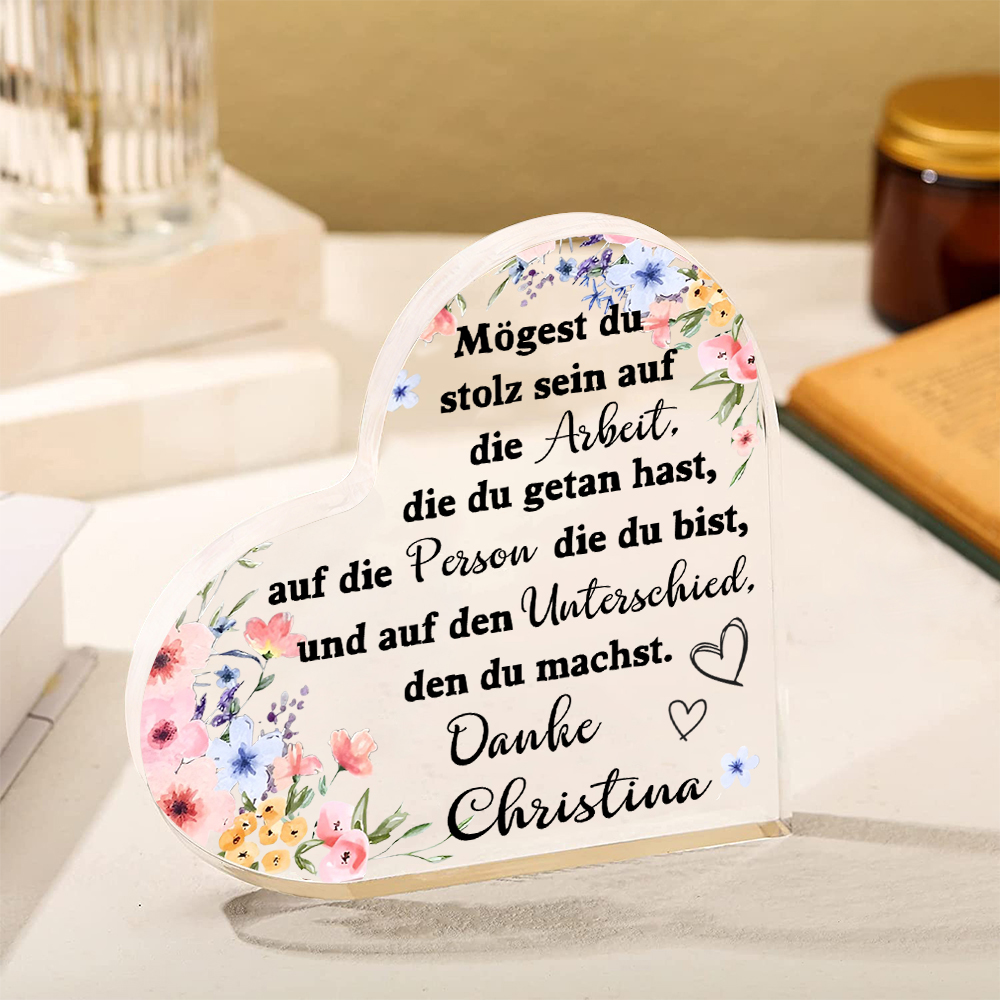 Mögest du
stolz sein auf
die Arbeit,
die du getan hast,
auf die Person die du bist,
und auf den Unterschied,
den du machst.
Danke
Christina